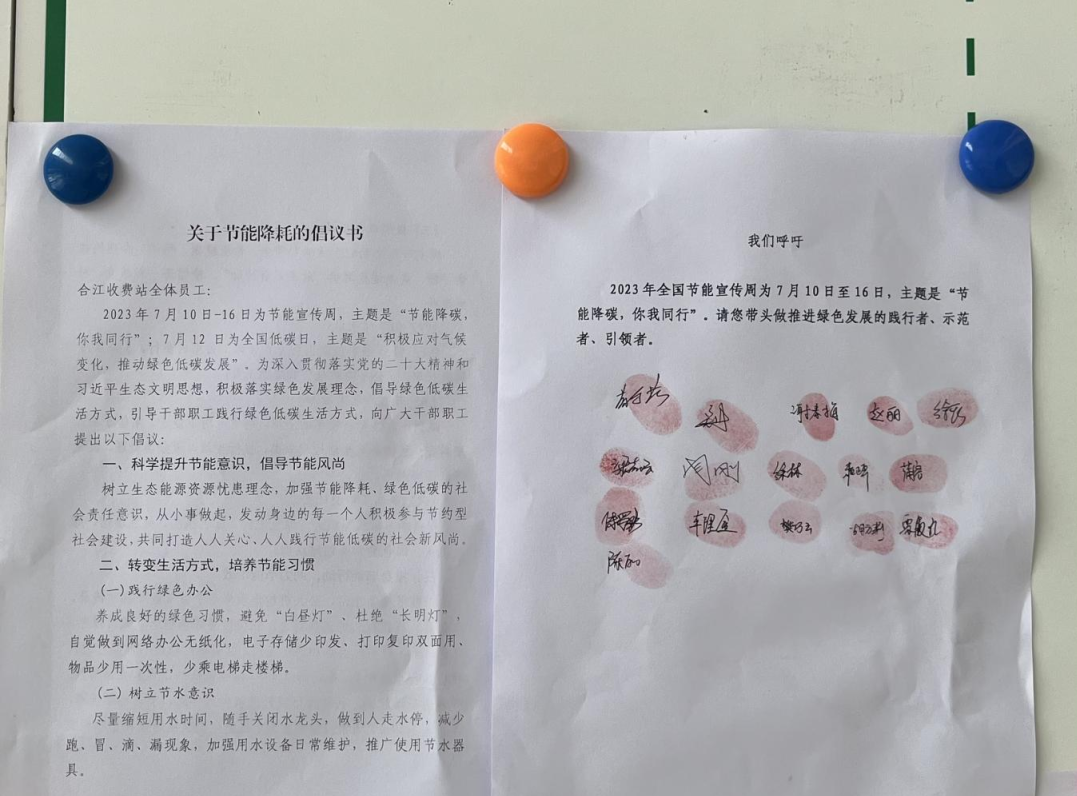 关于节能降耗的倡议书
合江收费站全体员工：
2023年7月10日-16日为节能宣传周，主题是“节能降碳，
你我同行”；7月12日为全国低碳日，主题是“积极应对气候
变化，推动绿色低碳发展”。为深入贯彻落实党的二十大精神和
习近平生态文明思想，积极落实绿色发展理念，倡导绿色低碳生
活方式，引导干部职工践行绿色低碳生活方式，向广大干部职工
提出以下倡议：
一、科学提升节能意识，倡导节能风尚
树立生态能源资源忧患理念，加强节能降耗、绿色低碳的社
会责任意识，从小事做起，发动身边的每一个人积极参与节约型
社会建设，共同打造人人关心、人人践行节能低碳的社会新风尚。
二、转变生活方式，培养节能习惯
（一）践行绿色办公
养成良好的绿色习惯，避免“白昼灯”、杜绝“长明灯”，
自觉做到网络办公无纸化，电子存储少印发、打印复印双面用、
物品少用一次性，少乘电梯走楼梯。
（二）树立节水意识
尽量缩短用水时间，随手关闭水龙头，做到人走水停，减少
跑、冒、滴、漏现象，加强用水设备日常维护，推广使用节水器
具。
我们呼吁
2023年全国节能宣传周为7月10日至16日，主题是“节
能降碳，你我同行”。请您带头做推进绿色发展的践行者、示范
者、引领者。
赵丽
闫刚 徐林